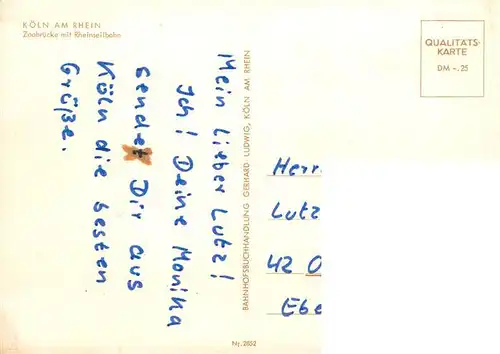 KÖLN AM RHEIN
Zoobrücke mit Rheinseilbahn
Mein lieber Lutz!
Ich! Deine Monika
sende Dir aus
Köln die besten
Grüße.
BAHNHOFSBUCHHANDLUNG GERHARD LUDWIG, KÖLN AM RHEIN
Nr. 2652
QUALITÄTS-
KARTE
DM -.25
Herr
Lutz
42 O
Ebe